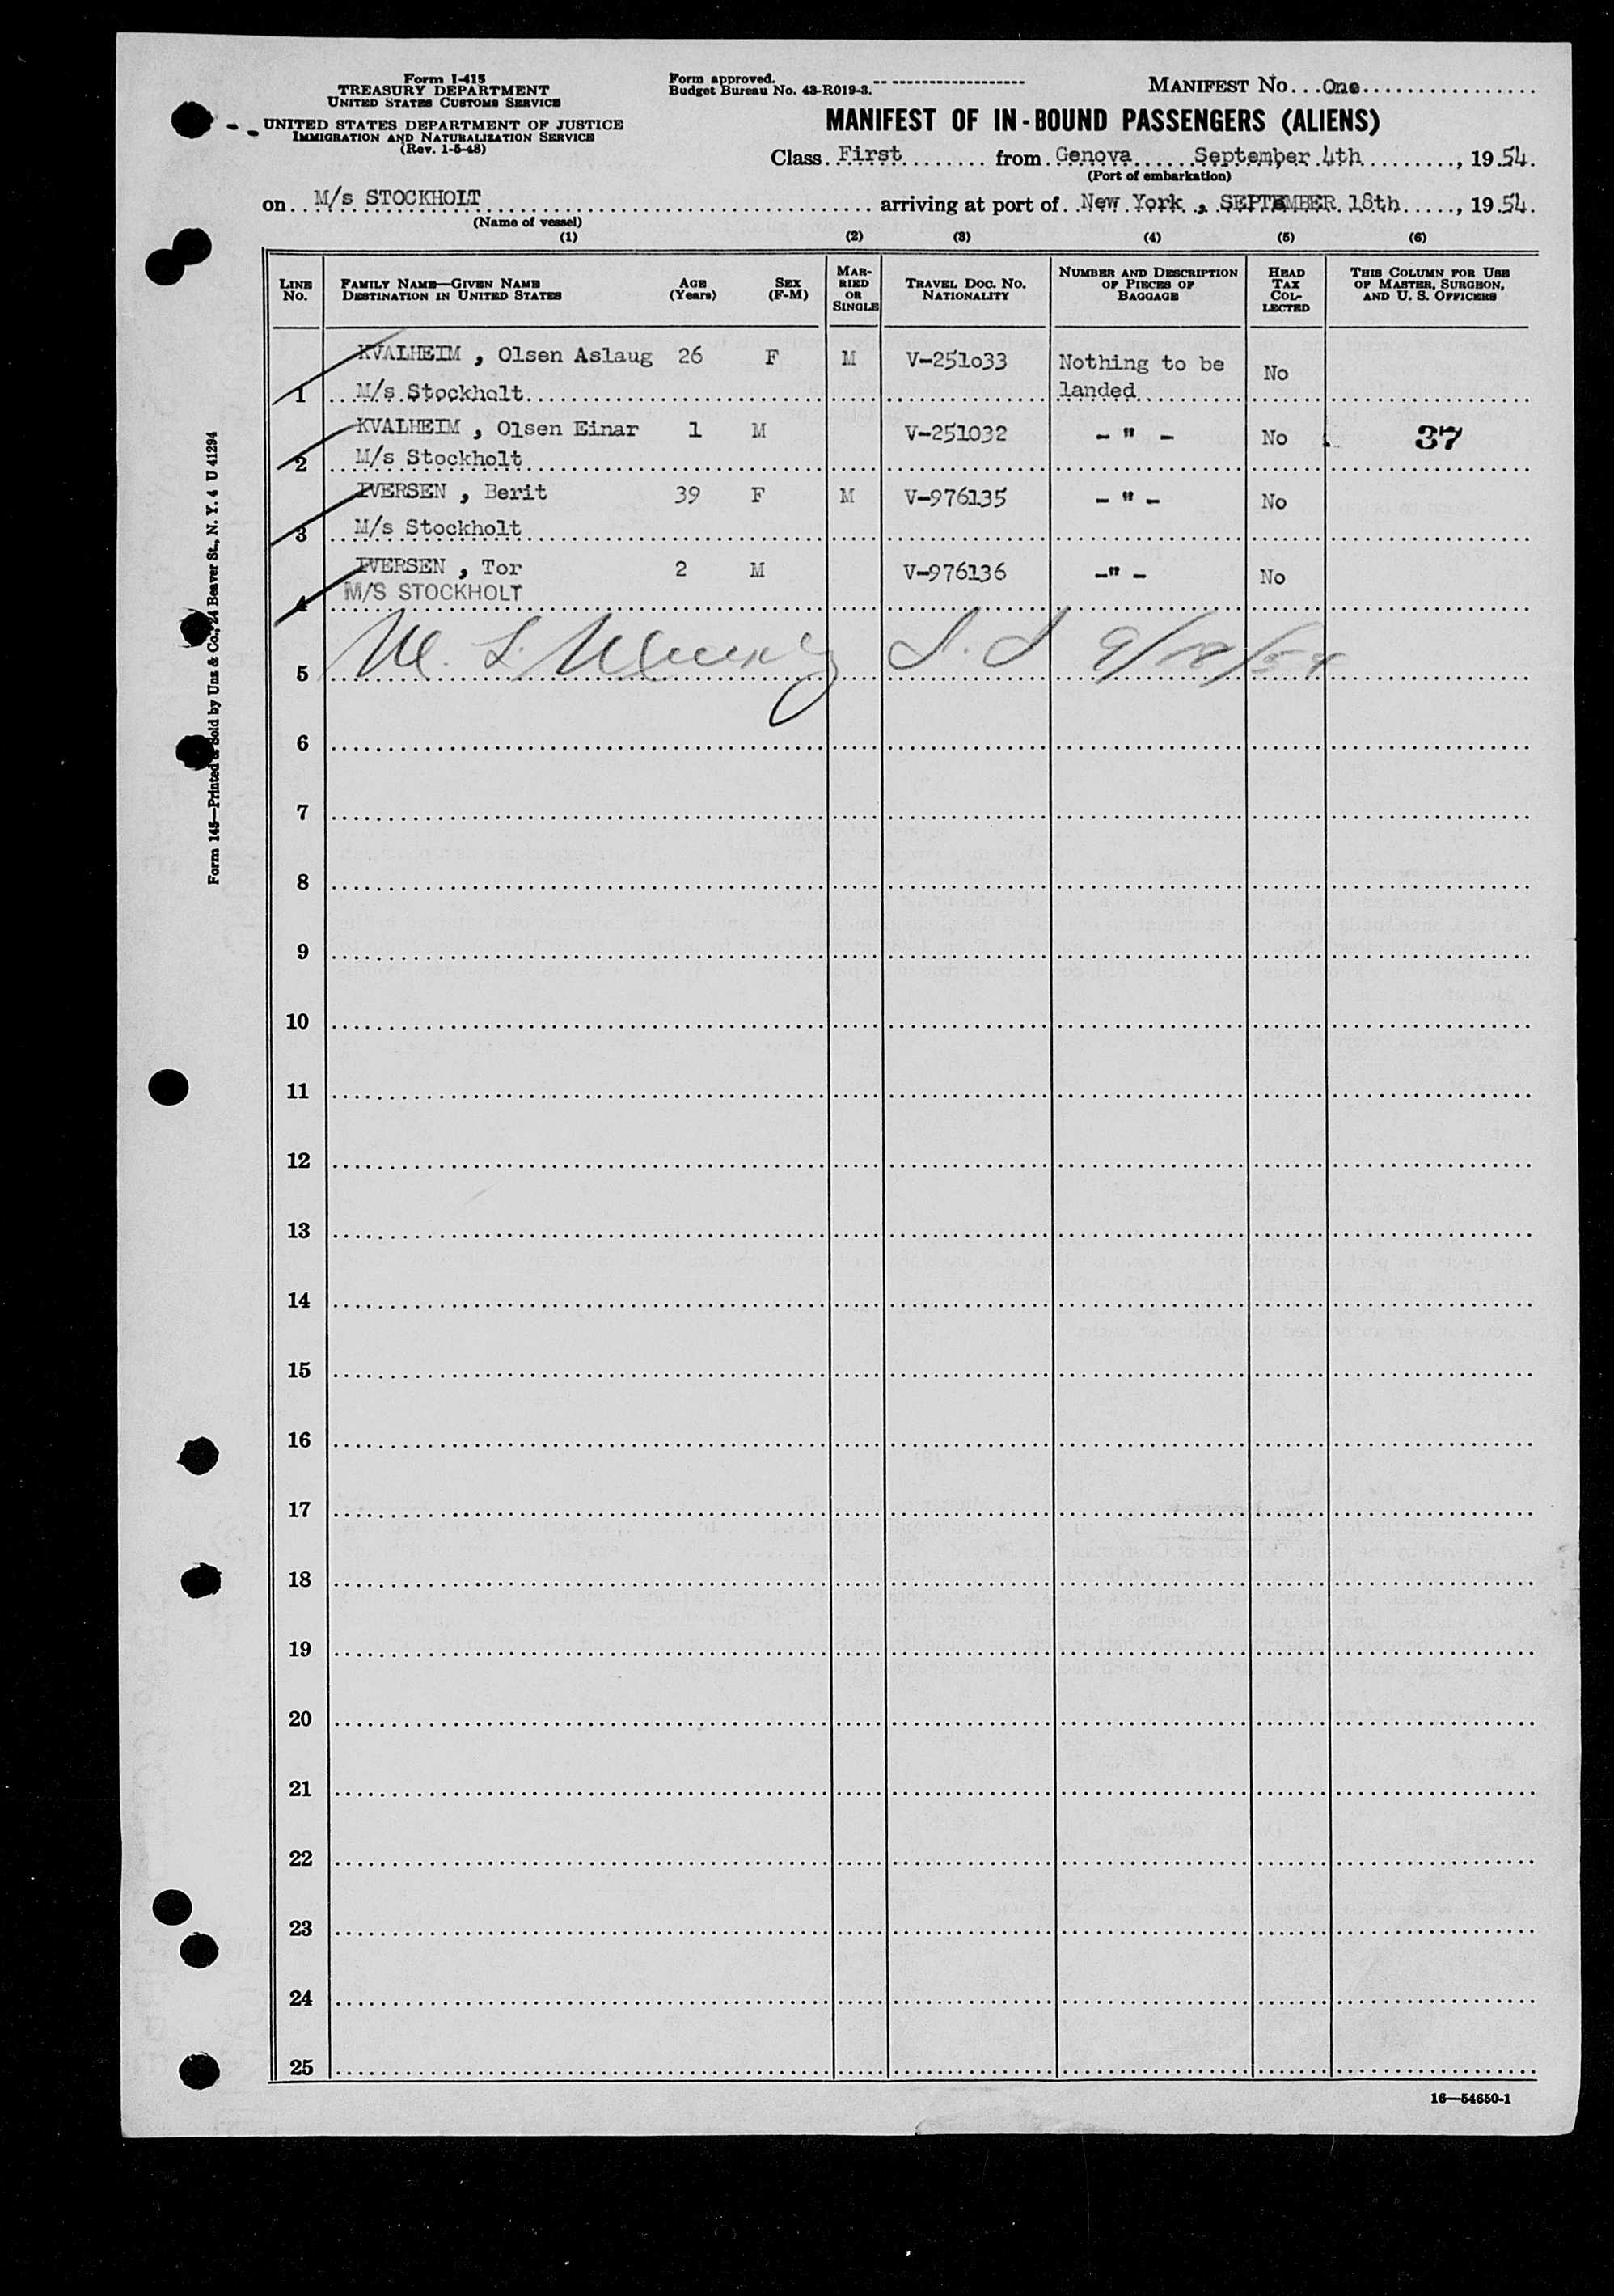 Form I-415
TREASURY DEPARTMENT
UNITED STATES CUSTOMS SERVICE
UNITED STATES DEPARTMENT OF JUSTICE
IMMIGRATION AND NATURALIZATION SERVICE
(Rev. 1-5-48)
Form approved.
Budget Bureau No. 43-R019-3.
MANIFEST No...One
MANIFEST OF IN-BOUND PASSENGERS (ALIENS)
Class First from Genova September 4th, 1954.
(Port of embarkation)
on M/s STOCKHOLT arriving at port of New York , SEPTEMBER 18th, 1954.
(Name of vessel)
(1) (2) (3) (4) (5) (6)
LINE No. FAMILY NAME—GIVEN NAME DESTINATION IN UNITED STATES AGE (Years) SEX (F-M) MARRIED OR SINGLE TRAVEL DOC. NO. NATIONALITY NUMBER AND DESCRIPTION OF PIECES OF BAGGAGE HEAD TAX COLLECTED THIS COLUMN FOR USE OF MASTER, SURGEON, AND U. S. OFFICERS
KVALHEIM , Olsen Aslaug 26 F M V-251o33 Nothing to be landed No
1 M/s Stockholt
KVALHEIM , Olsen Einar 1 M V-251032 - " - No 37
2 M/s Stockholt
IVERSEN , Berit 39 F M V-976135 - " - No
3 M/s Stockholt
IVERSEN , Tor 2 M V-976136 -" - No
4 M/S STOCKHOLT
5 9/18/54
6
7
8
9
10
11
12
13
14
15
16
17
18
19
20
21
22
23
24
25
16—54650-1
Form 145—Printed & Sold by Unz & Co., 24 Beaver St., N. Y. 4 U 41294